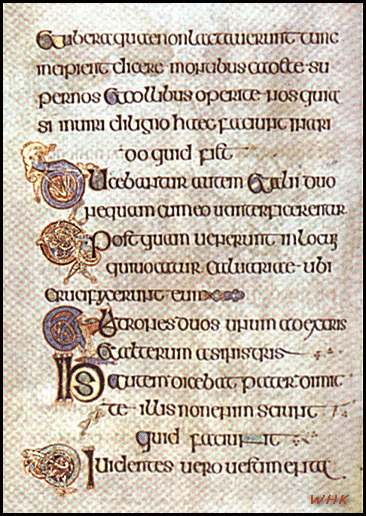 Et ubera quae non lactaverunt tunc
incipient dicere montibus cadite su
pernos et collibus operite nos quia
si in uiridi ligno haec faciunt in ari
do quid fiet
Ducebantur autem et alii duo
nequam cum eo ut interficerentur
Postquam uenerunt in locum
qui uocatur caluariae ubi
crucifixerunt eum
Latrones duos unum a dextris
et alterum a sinistris
Ihs autem dicebat pater dimit
te illis non enim sciunt
quid faciunt
Diuidentes uero uestimenta
WHK